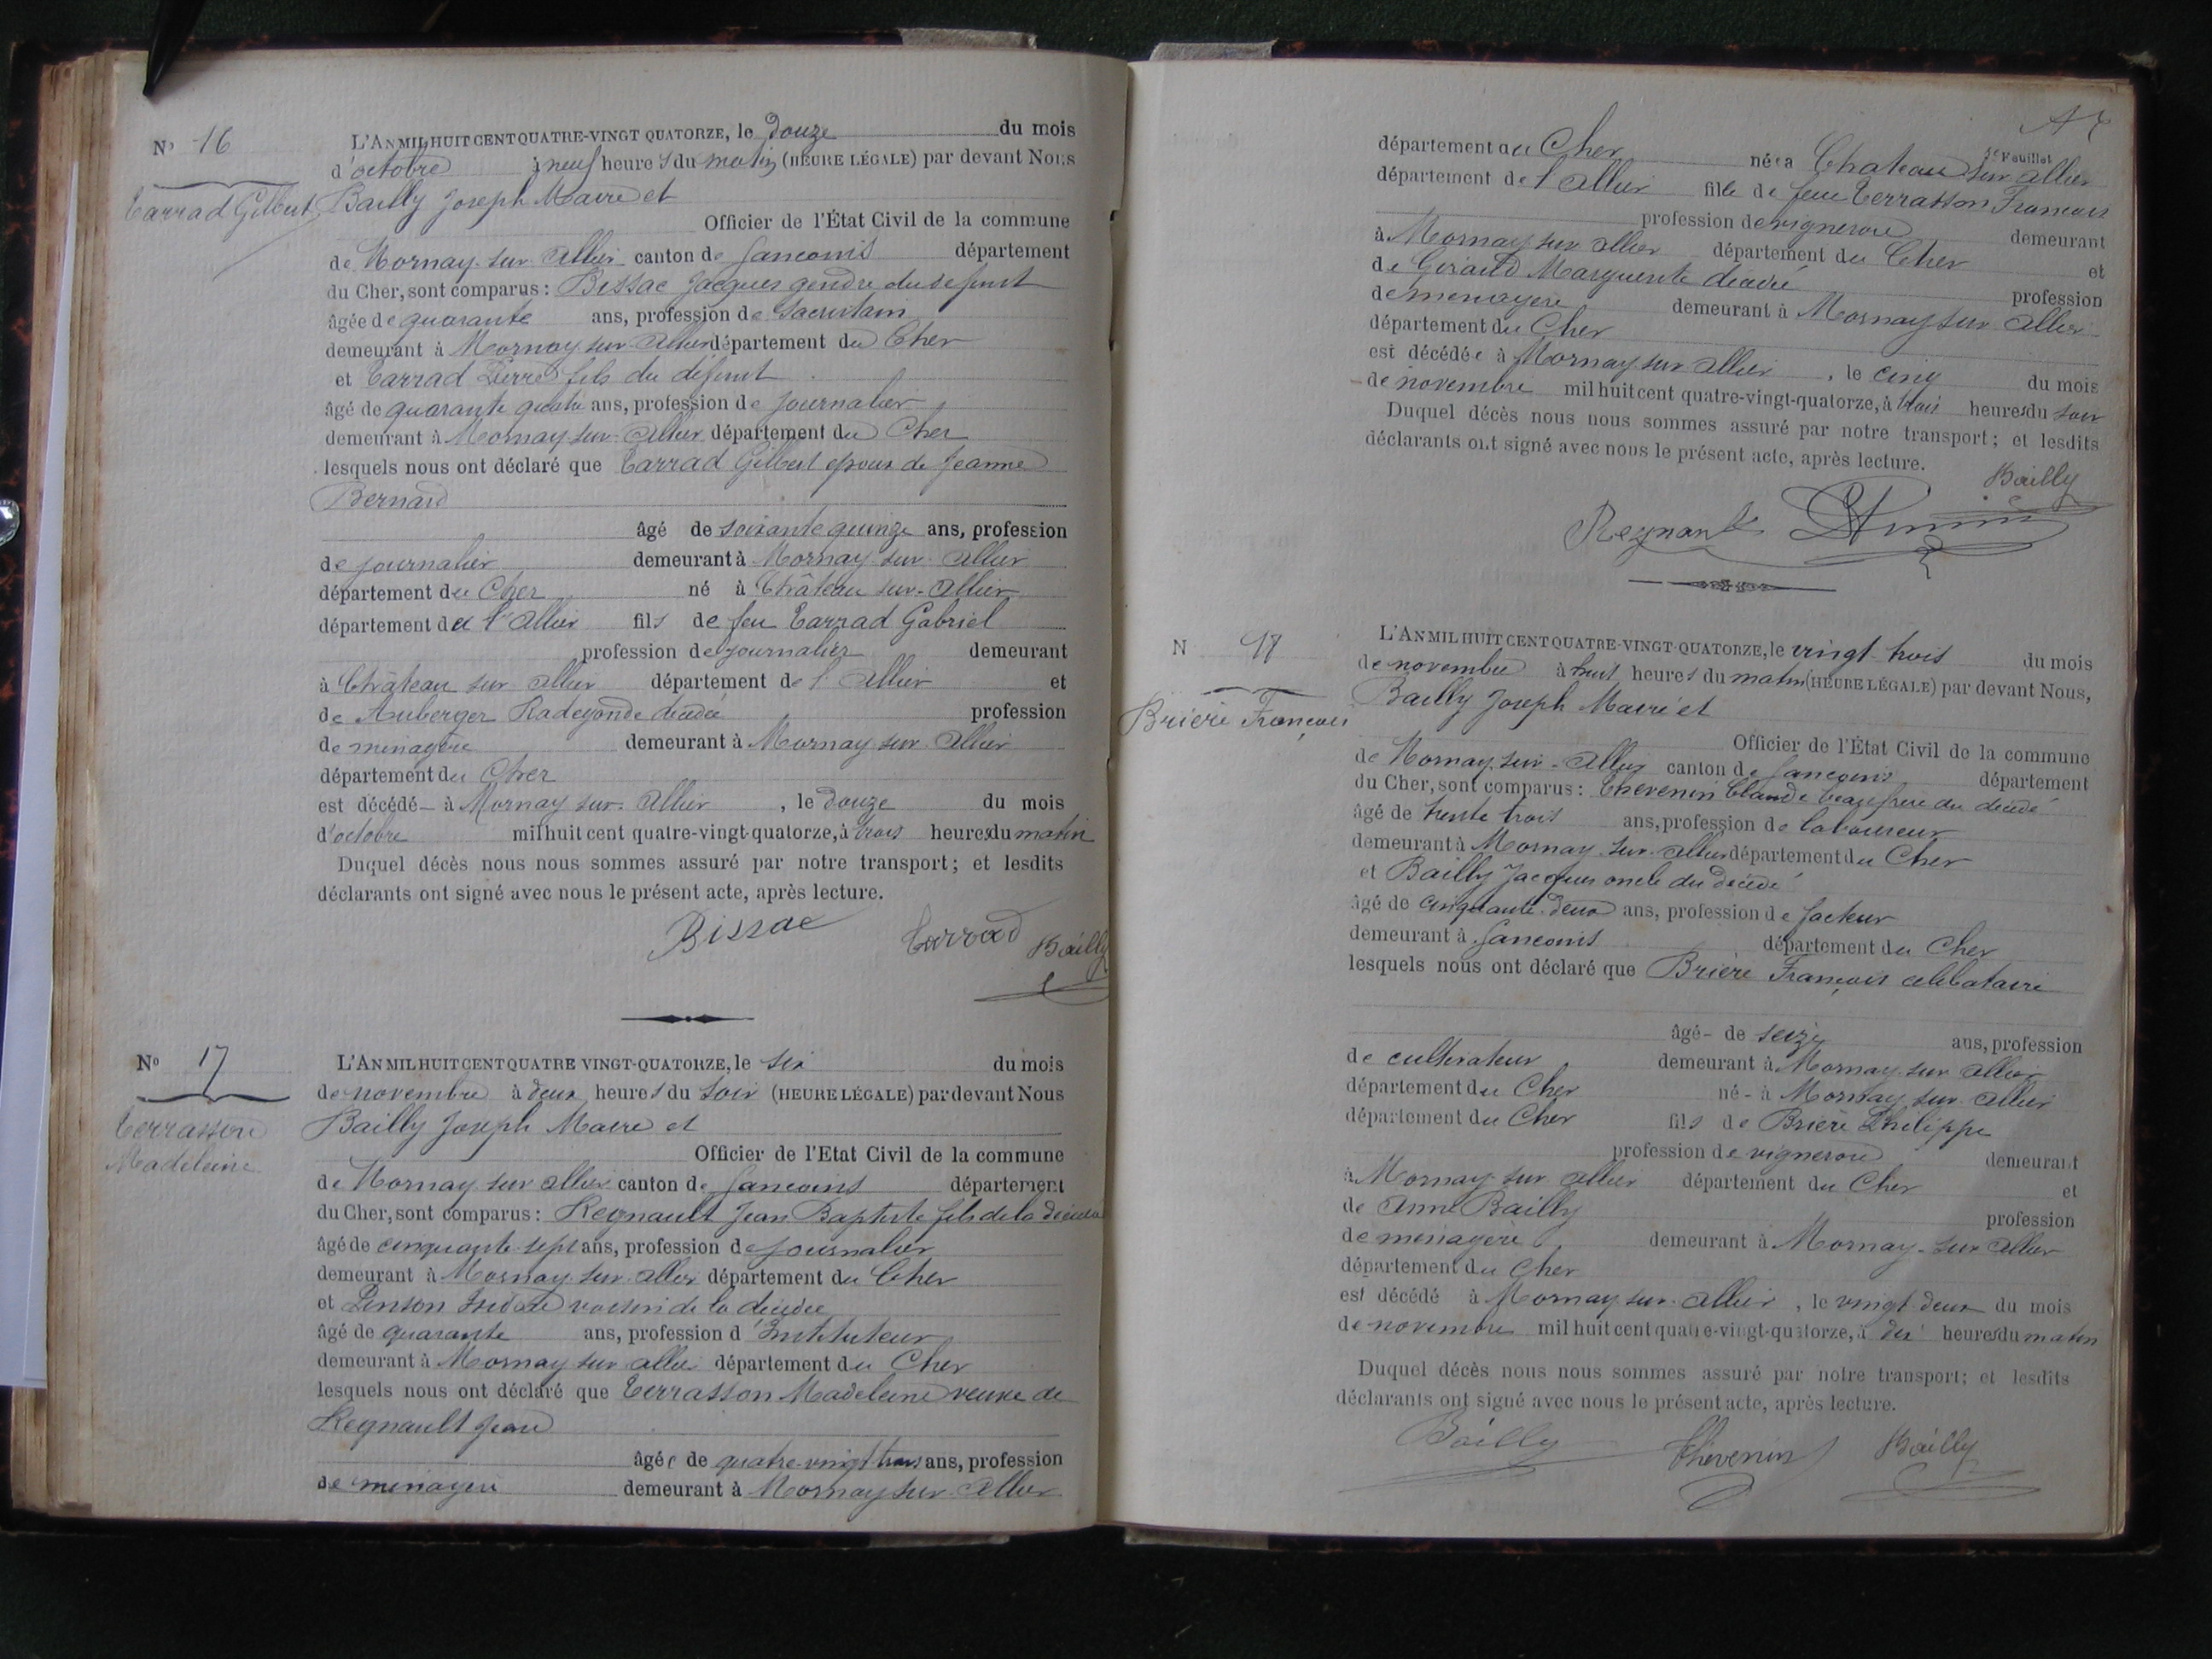 No 16
Tarrad Gilbert
L'AN MIL HUIT CENT QUATRE-VINGT QUATORZE, le Douze du mois
d'octobre à neuf heures du matin (HEURE LÉGALE) par devant Nous
Bailly Joseph Maire et
Officier de l'État Civil de la commune
de Mornay-sur-Allier canton de Sancoins département
du Cher, sont comparus : Bissac Jacques gendre du défunt
âgée de quarante ans, profession de Sacristain
demeurant à Mornay-sur-Allier département du Cher
et Tarrad Pierre fils du défunt
âgé de quarante quatre ans, profession de journalier
demeurant à Mornay-sur-Allier département du Cher
lesquels nous ont déclaré que Tarrad Gilbert époux de Jeanne
Bernard
âgé de soixante quinze ans, profession
de journalier demeurant à Mornay-sur-Allier
département du Cher né à Château-sur-Allier
département de l'Allier fils de feu Tarrad Gabriel
profession de journalier demeurant
à Château sur Allier département de l'Allier et
de Auberger Radegonde décédée profession
de ménagère demeurant à Mornay-sur-Allier
département du Cher
est décédé à Mornay-sur-Allier, le douze du mois
d'octobre mil huit cent quatre-vingt-quatorze, à trois heures du matin
Duquel décès nous nous sommes assuré par notre transport ; et lesdits
déclarants ont signé avec nous le présent acte, après lecture.
Bissac Tarrad Bailly
No 17
Terrasson
Madeleine
L'AN MIL HUIT CENT QUATRE VINGT-QUATORZE, le six du mois
de novembre à deux heures du soir (HEURE LÉGALE) par devant Nous
Bailly Joseph Maire et
Officier de l'Etat Civil de la commune
de Mornay sur Allier canton de Sancoins département
du Cher, sont comparus : Regnault Jean Baptiste fils de la décédée
âgé de cinquante-sept ans, profession de journalier
demeurant à Mornay-sur-Allier département du Cher
et Pinson Isidore voisin de la décédée
âgé de quarante ans, profession d'Instituteur
demeurant à Mornay sur Allier département du Cher
lesquels nous ont déclaré que Terrasson Madeleine veuve de
Regnault Jean
âgée de quatre-vingt trois ans, profession
de ménagère demeurant à Mornay sur Allier
5e Feuillet
département du Cher née à Chateau sur Allier
département de l'Allier fille de feu Terrasson Francois
profession de vigneron demeurant
à Mornay sur Allier département du Cher et
de Giraud Marguerite décédée profession
de ménagère demeurant à Mornay sur Allier
département du Cher
est décédée à Mornay sur Allier, le cinq du mois
de novembre mil huit cent quatre-vingt-quatorze, à trois heures du soir
Duquel décès nous nous sommes assuré par notre transport ; et lesdits
déclarants ont signé avec nous le présent acte, après lecture.
Bailly
Regnault
N 18
Brière François
L'AN MIL HUIT CENT QUATRE-VINGT-QUATORZE, le vingt trois du mois
de novembre à huit heures du matin (HEURE LÉGALE) par devant Nous,
Bailly Joseph Maire et
Officier de l'État Civil de la commune
de Mornay-sur-Allier canton de Sancoins département
du Cher, sont comparus : Thevenin Claude beau frère du décédé
âgé de trente trois ans, profession de laboureur
demeurant à Mornay-sur-Allier département du Cher
et Bailly Jacques oncle du décédé
âgé de cinquante-deux ans, profession de facteur
demeurant à Sancoins département du Cher
lesquels nous ont déclaré que Brière François célibataire
âgé de seize ans, profession
de cultivateur demeurant à Mornay-sur-Allier
département du Cher né à Mornay-sur-Allier
département du Cher fils de Brière Philippe
profession de vigneron demeurant
à Mornay sur Allier département du Cher et
de Anne Bailly profession
de ménagère demeurant à Mornay-sur-Allier
département du Cher
est décédé à Mornay-sur-Allier, le vingt-deux du mois
de novembre mil huit cent quatre-vingt-quatorze, à dix heures du matin
Duquel décès nous nous sommes assuré par notre transport ; et lesdits
déclarants ont signé avec nous le présent acte, après lecture.
Bailly Thévenin Bailly